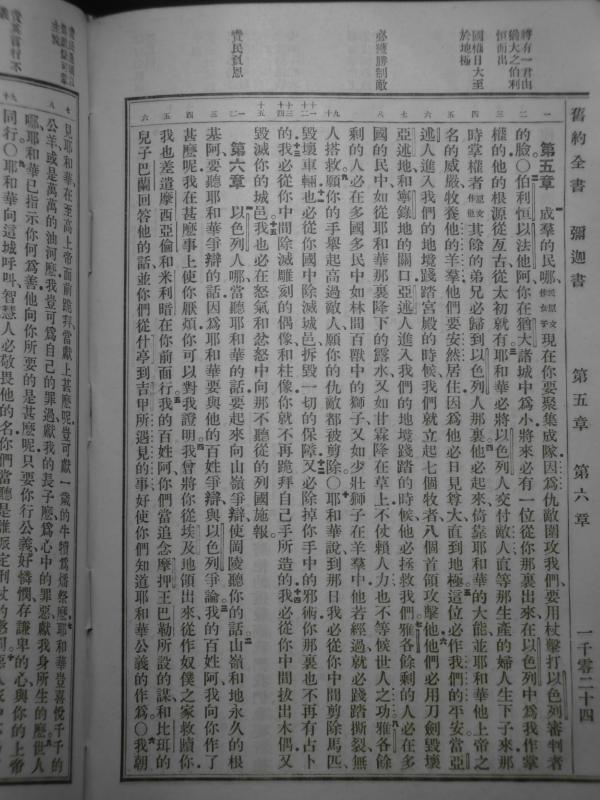 舊約全書 彌迦書 第五章 第六章 一千零二十四
將有一君由
猶大之伯利
恒而出
國權日大至
於地極
必獲勝制敵
責民負恩
第五章 成羣的民哪原文作女子現在你要聚集成隊因爲仇敵圍攻我們要用杖擊打以色列審判者
的臉○伯利恒以法他阿你在猶大諸城中爲小將來必有一位從你那裏出來在以色列中爲我作掌
權的他的根源從亙古從太初就有耶和華必將以色列人交付敵人直等那生產的婦人生下子來那
時掌權者原文作他其餘的弟兄必歸到以色列人那裏他必起來倚靠耶和華的大能並耶和華他上帝之
名的威嚴牧養他的羊羣他們要安然居住因爲他必日見尊大直到地極這位必作我們的平安當亞
述人進入我們的地境踐踏宮殿的時候我們就立起七個牧者八個首領攻擊他他們必用刀劍毀壞
亞述地和寧錄地的關口亞述人進入我們的地境踐踏的時候他必拯救我們雅各餘剩的人必在多
國的民中如從耶和華那裏降下的露水又如甘霖降在草上不仗賴人力也不等候世人之功雅各餘
剩的人必在多國多民中如林間百獸中的獅子又如少壯獅子在羊羣中他若經過就必踐踏撕裂無
人搭救願你的手舉起高過敵人願你的仇敵都被剪除○耶和華說到那日我必從你中間剪除馬匹
毀壞車輛也必從你國中除滅城邑拆毀一切的保障又必除掉你手中的邪術你那裏也不再有占卜
的我必從你中間除滅雕刻的偶像和柱像你就不再跪拜自己手所造的我必從你中間拔出木偶又
毀滅你的城邑我也必在怒氣和忿怒中向那不聽從的列國施報
第六章 以色列人哪當聽耶和華的話要起來向山嶺爭辯使岡陵聽你的話山嶺和地永久的根
基阿要聽耶和華爭辯的話因爲耶和華要與他的百姓爭辯與以色列爭論我的百姓阿我向你作了
甚麽呢我在甚麽事上使你厭煩你可以對我證明我曾將你從埃及地領出來從作奴僕之家救贖你
我也差遣摩西亞倫和米利暗在你前面行我的百姓阿你們當追念摩押王巴勒所設的謀和比珥的
兒子巴蘭回答他的話並你們從什亭到吉甲所遇見的事好使你們知道耶和華公義的作爲○我朝
見耶和華在至高上帝面前跪拜當獻上甚麽呢豈可獻一歲的牛犢爲燔祭麽耶和華豈喜悅千千的
公羊或是萬萬的油河麽我豈可爲自己的罪過獻我的長子麽爲心中的罪惡獻我身所生的麽世人
哪耶和華已指示你何爲善他向你所要的是甚麽呢只要你行公義好憐憫存謙卑的心與你的上帝
同行○耶和華向這城呼叫智慧人必敬畏他的名你們當聽是誰派定刑杖的